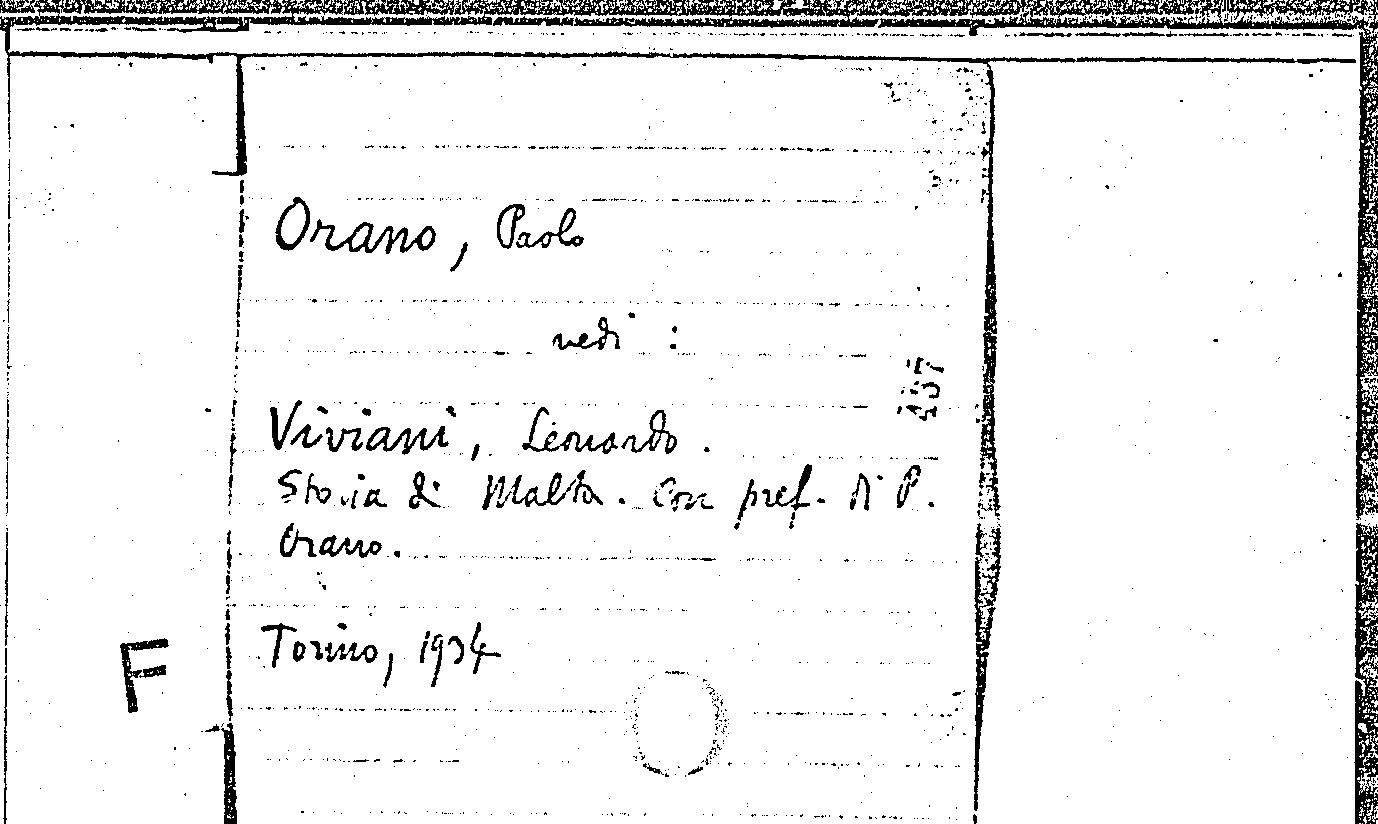 Orano, Paolo
vedi :
437
Viviani, Leonardo.
Storia di Malta. Con pref. di P.
Orano.
Torino, 1934
F